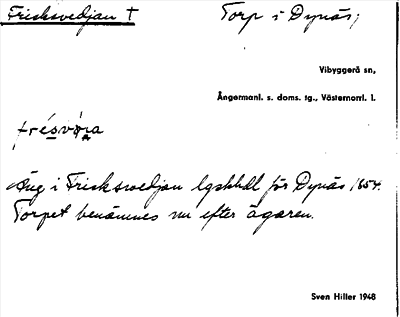 Frisksvedjan † Torp i Dynäs,
Vibyggerå sn,
Ångermanl. s. doms. tg., Västernorrl. l.
frésvóra
Äng i Frisksvedjan lgskhdl för Dynäs 1654.
Torpet benämnes nu efter ägaren.
Sven Hiller 1948